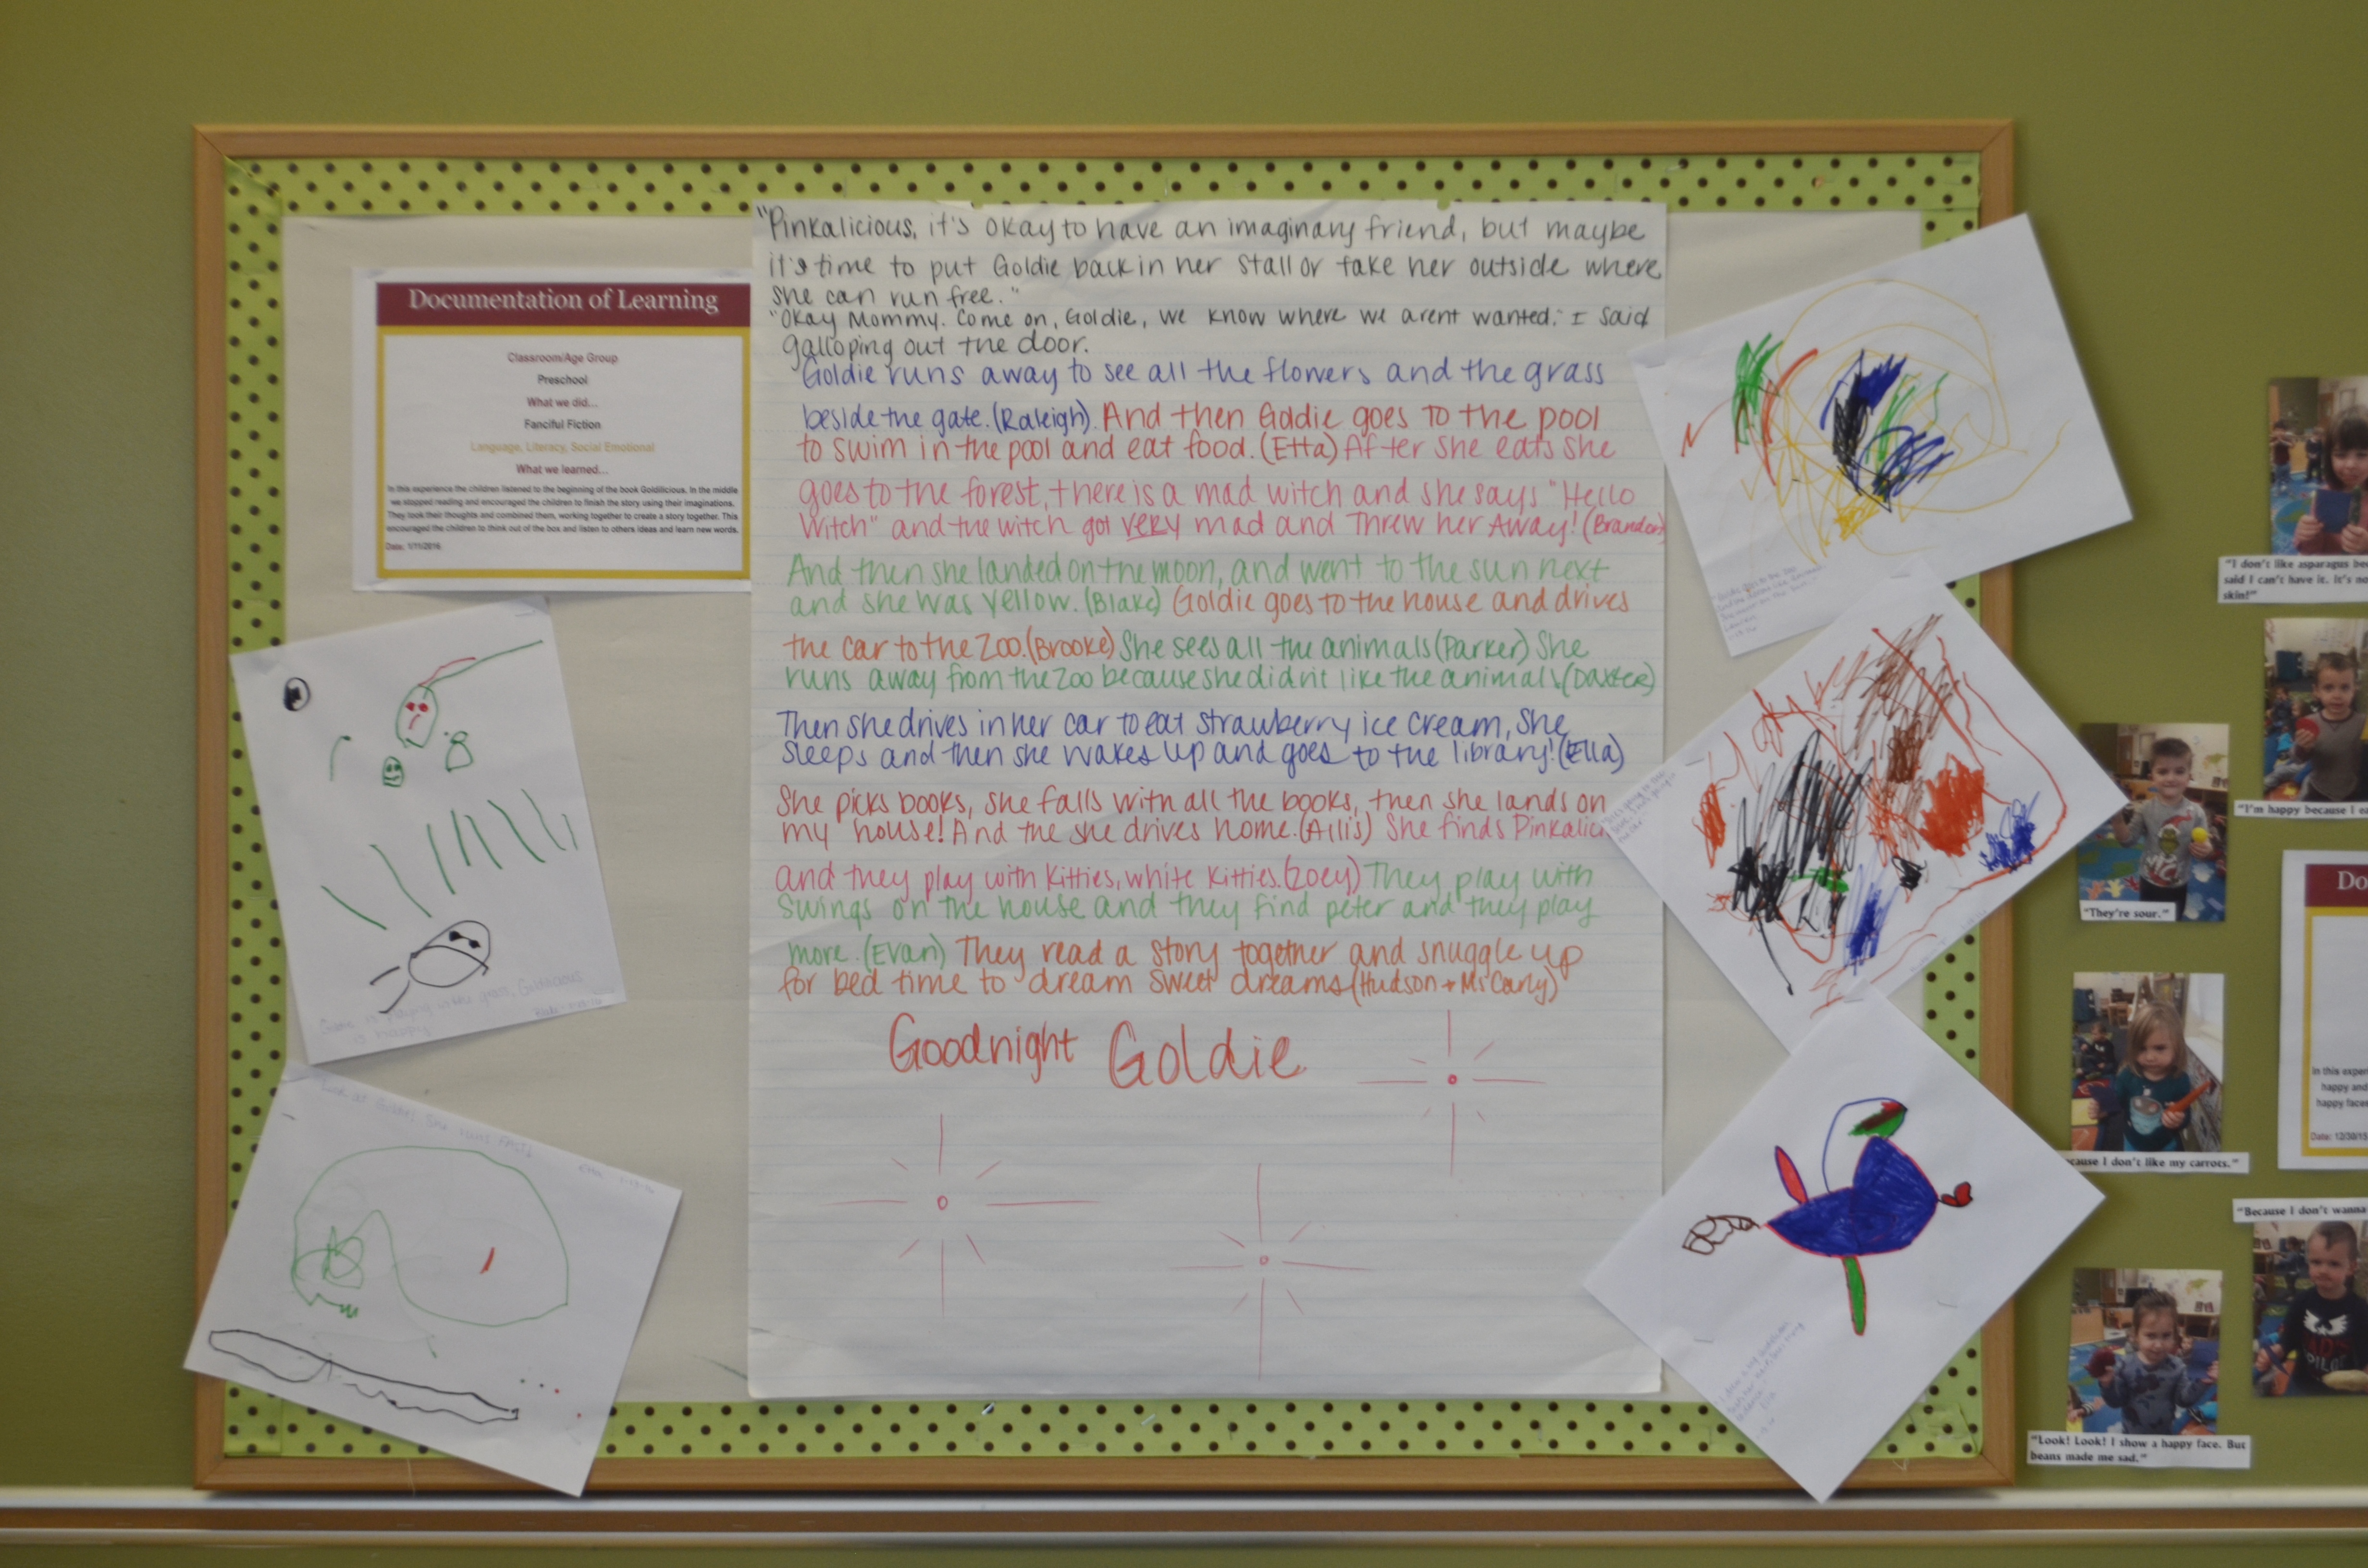 Documentation of Learning
Classroom/Age Group
Preschool
What we did...
Fanciful Fiction
Language, Literacy, Social Emotional
What we learned...
In this experience the children listened to the beginning of the book Goldilicious. In the middle
we stopped reading and encouraged the children to finish the story using their imaginations.
They took their thoughts and combined them, working together to create a story together. This
encouraged the children to think out of the box and listen to others ideas and learn new words.
Date: 1/11/2016
"Pinkalicious, it's okay to have an imaginary friend, but maybe
it's time to put Goldie back in her stall or take her outside where
she can run free."
"Okay Mommy. Come on, Goldie, we know where we arent wanted." I said
galloping out the door.
Goldie runs away to see all the flowers and the grass
beside the gate. (Raleigh). And then Goldie goes to the pool
to swim in the pool and eat food. (Etta) After she eats she
goes to the forest, there is a mad witch and she says "Hello
Witch" and the witch got very mad and Threw her Away! (Brandon)
And then she landed on the moon, and went to the sun next
and she was yellow. (Blake) Goldie goes to the house and drives
the car to the zoo. (Brooke) She sees all the animals (Parker) She
runs away from the zoo because she didn't like the animals (Daxter)
Then she drives in her car to eat strawberry ice cream, She
sleeps and then she wakes up and goes to the library! (Ella)
She picks books, she falls with all the books, then she lands on
my house! And the she drives home. (Aillis) She finds Pinkalici
and they play with kitties, white kitties. (Zoey) They play with
swings on the house and they find peter and they play
more. (Evan) They read a story together and snuggle up
for bed time to dream sweet dreams (Hudson +
Goodnight Goldie
Look at Goldie! She runs FAST!
"I don't like asparagus bec
said I can't have it. It's no
skin!"
"I'm happy because I ea
"They're sour."
cause I don't like my carrots."
"Because I don't wanna
"Look! Look! I show a happy face. But
beans made me sad."
Do
In this exper
happy and
happy face
Date: 12/30/15